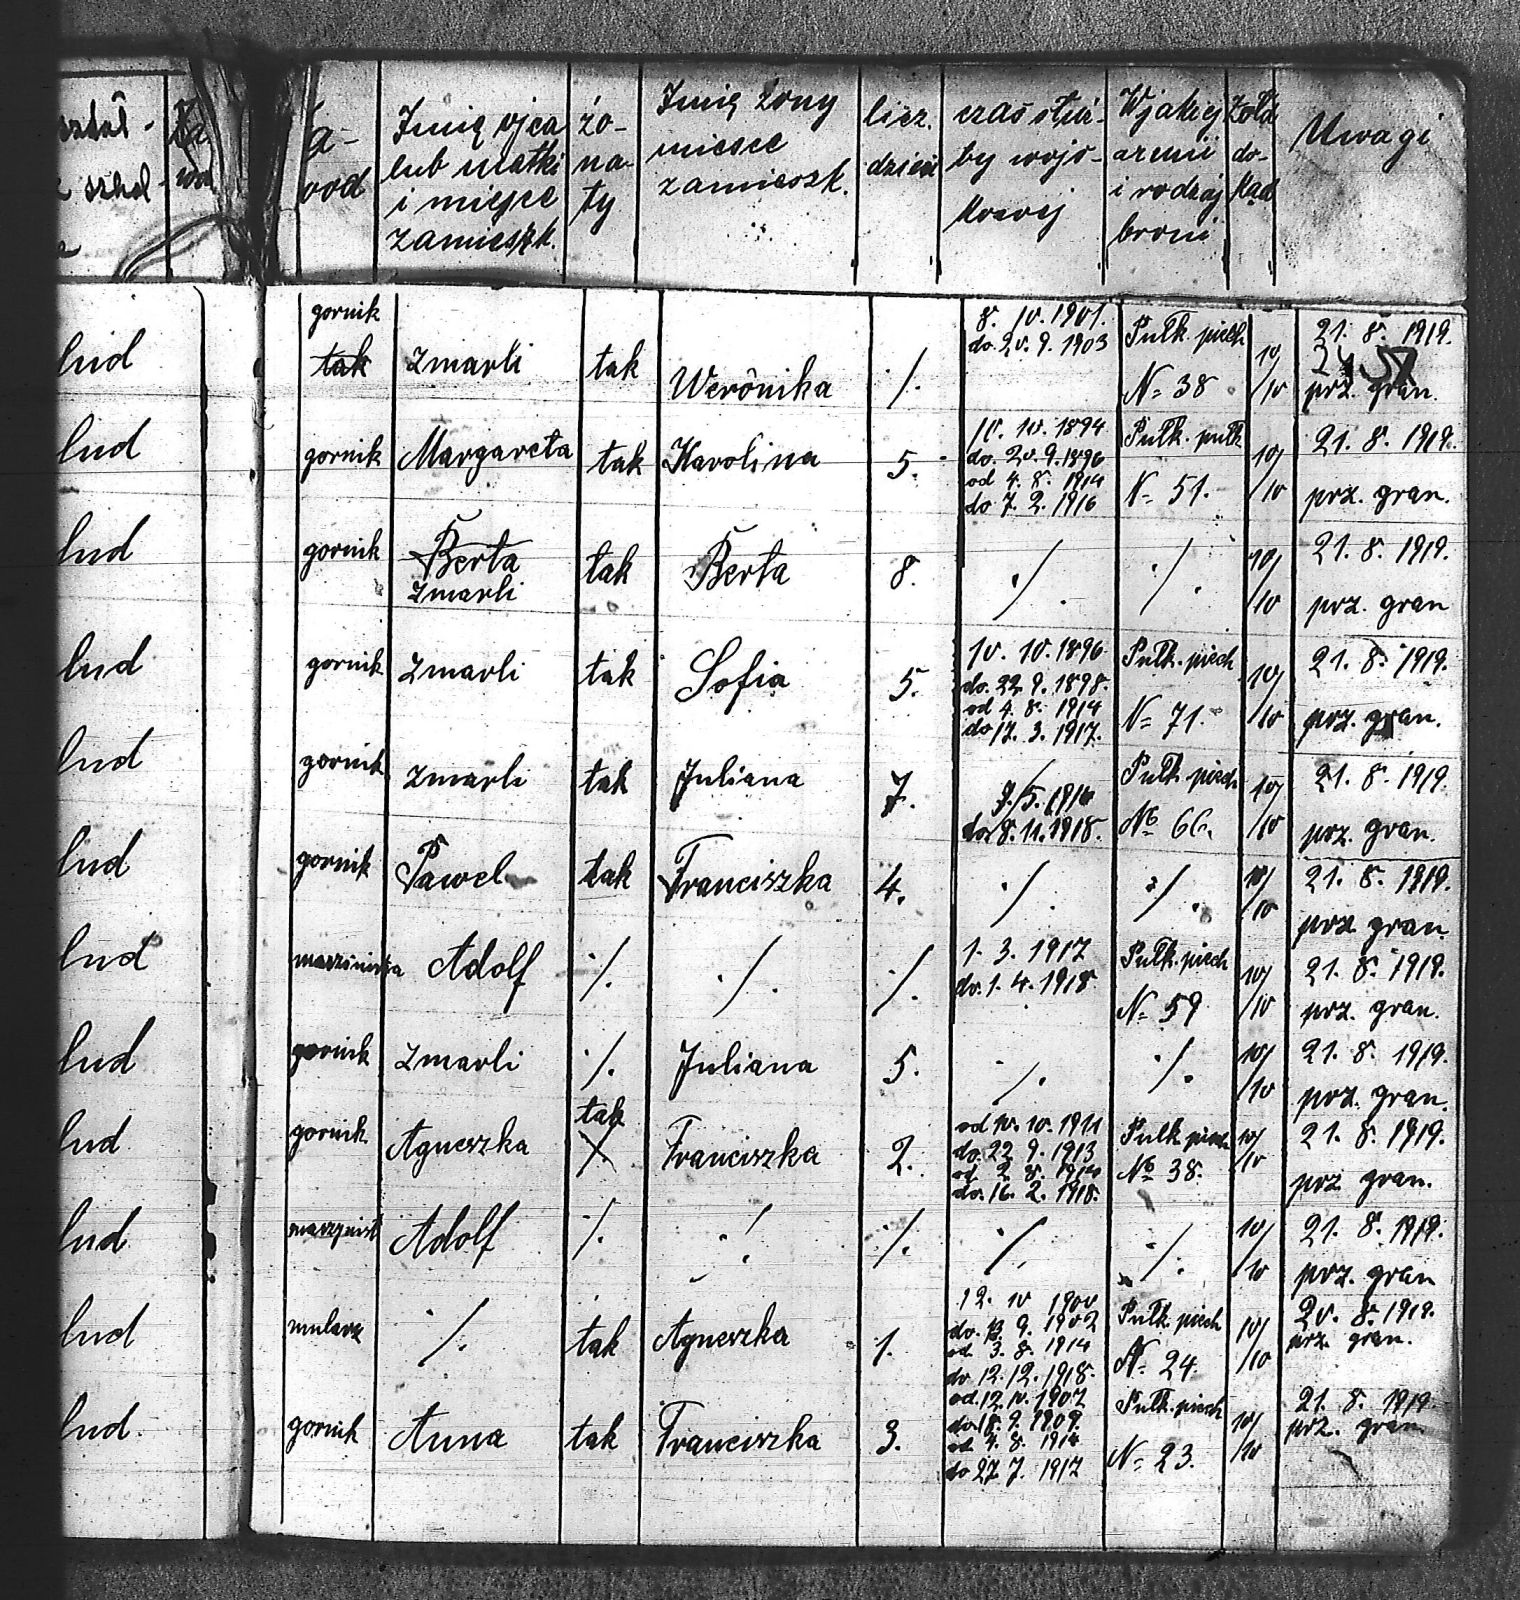 ształ-
szkol
Za
wod
Za-
wod
Imię ojca
lub matki
i miejsce
zamieszk.
żo-
na-
ty
Imię żony
miesce
zamieszk.
licz.
dzieci
czas służ-
by wojs-
kowej
W jakiej
armii
i rodzaj
broni
Żołd
do-
kąd
Uwagi
lud
gornik
tak
zmarli
tak
Weronika
/.
8. 10. 1901.
do. 20. 9. 1903
Pułk. piech
№ 38
10/
/10
21. 8. 1919.
prz. gran.
lud
gornik
Margareta
tak
Karolina
5.
10. 1894
do. 20. 9. 1896
od 4. 8. 1914
do 7. 2. 1916
Pułk. pułk
№ 51.
10/
/10
21. 8. 1919.
prz. gran.
lud
gornik
Berta
zmarli
tak
Berta
8.
/.
/.
10/
/10
21. 8. 1919.
prz. gran
lud
gornik
zmarli
tak
Sofia
5.
10. 10. 1896
do. 22. 9. 1898.
od 4. 8. 1914
do 17. 3. 1917.
Pułk. piech
№ 71.
10/
/10
21. 8. 1919.
prz. gran.
lud
gornik
zmarli
tak
Juliana
7.
do 8. 11. 1918.
Pułk. piech
№ 66.
10/
/10
21. 8. 1919.
prz. gran.
lud
gornik
Pawel
tak
Franciszka
4.
/.
/.
10/
/10
21. 8. 1919.
prz. gran.
lud
Adolf
/.
/.
/.
1. 3. 1917
do. 1. 4. 1918
Pułk. piech
№ 59
10/
/10
21. 8. 1919.
prz. gran.
lud
gornik
zmarli
/.
Juliana
5.
/.
/.
10/
/10
21. 8. 1919.
prz. gran.
lud
gornik
Agneszka
tak
Franciszka
2.
od 10. 10. 1911
do. 22 9. 1913
od 2. 8. 1914
do. 16. 2. 1918.
Pułk piech
№ 38.
10/
/10
21. 8. 1919.
prz gran.
lud
Adolf
/.
/.
/.
/.
/.
10/
/10
21. 8. 1919.
prz. gran
lud
mularz
/.
tak
Agneszka
1.
12. 10 1900
do. 13. 9. 1902
od 3. 8. 1914
do 12. 12. 1918.
Pułk. piech
№ 24.
10/
/10
20. 8. 1919.
prz. gran.
lud
gornik
Anna
tak
Franciszka
3.
od. 12. 10. 1907
do 18. 9. 1909.
od 4. 8. 1914
do 27. 7. 1917
Pułk. piech
№ 23.
10/
/10
21. 8. 1919.
prz. gran